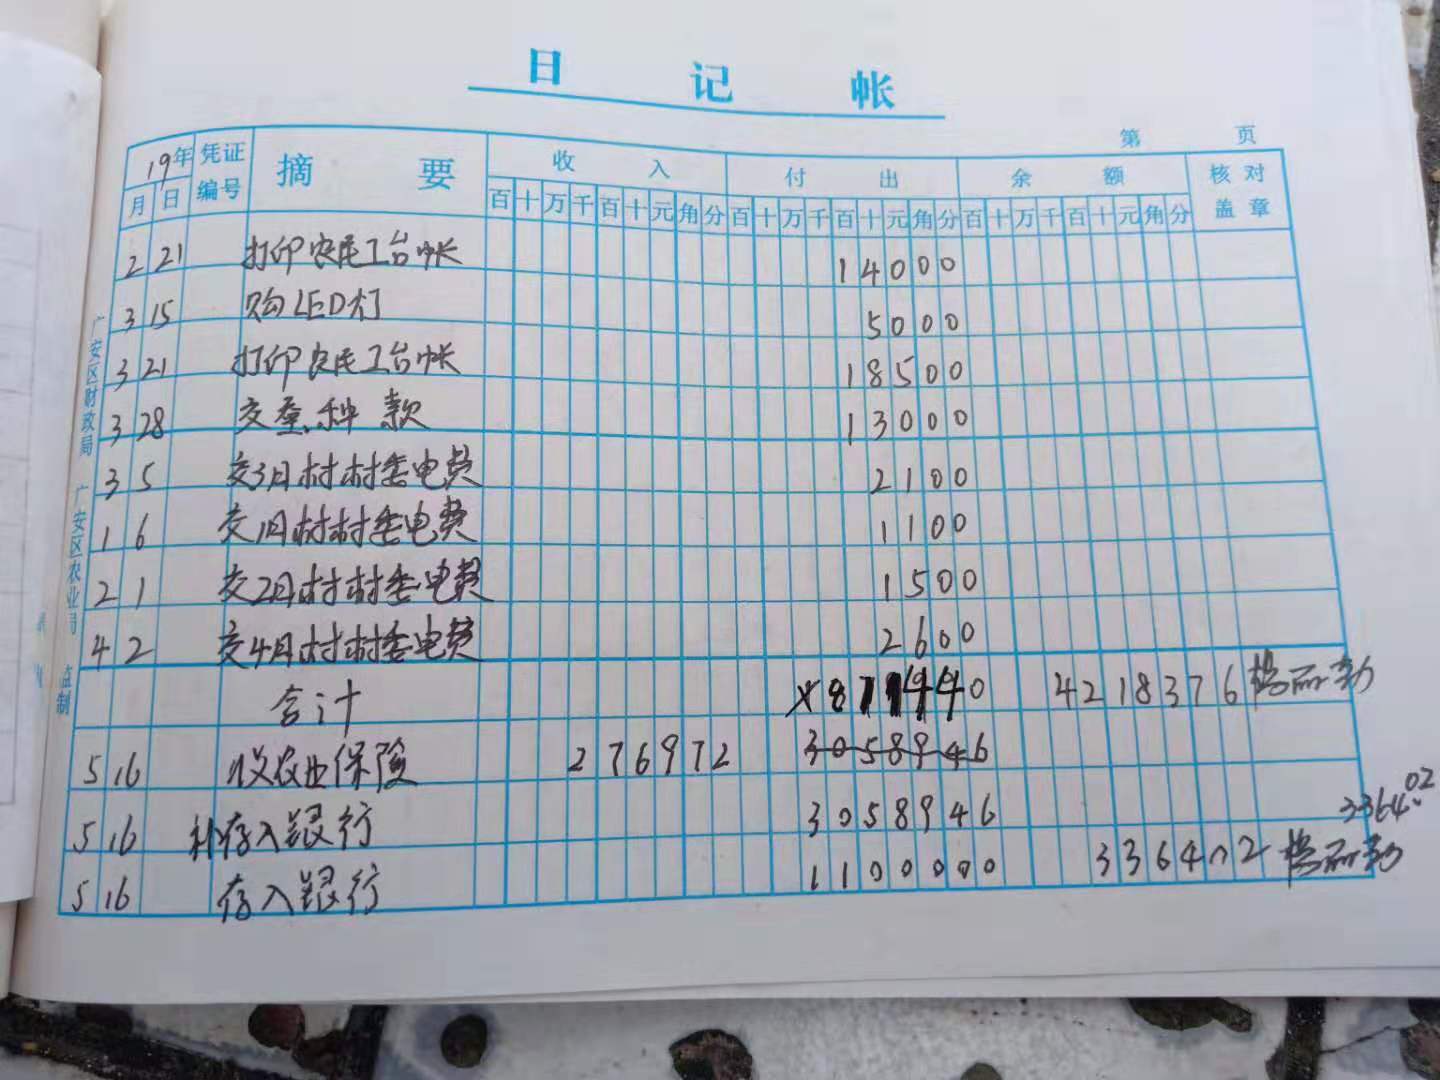 日 记 帐
第 页
19年 凭证编号 摘 要 收 入 付 出 余 额 核 对 盖 章
月 日 百 十 万 千 百 十 元 角 分 百 十 万 千 百 十 元 角 分 百 十 万 千 百 十 元 角 分
2 21 打印农民工台帐 14000
3 15 购LED灯 5000
3 21 打印农民工台帐 18500
3 28 交蚕种款 13000
3 5 交3月村村委电费 2100
1 6 交1月村村委电费 1100
2 1 交2月村村委电费 1500
4 2 交4月村村委电费 2600
合计 4218376
5 16 收农业保险 276972 3058946
5 16 补存入银行 3058946 3364.02
5 16 存入银行 1100000 336402
广安区财政局 广安区农业局 监制